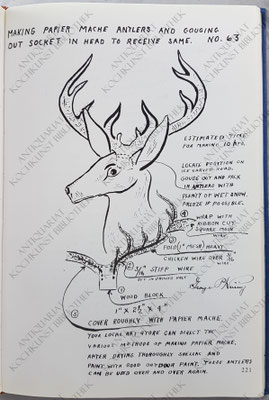 MAKING PAPIER MACHE ANTLERS AND GOUGING
OUT SOCKET IN HEAD TO RECEIVE SAME. NO. 63
ESTIMATED TIME
FOR MAKING 10 HRS.
LOCATE POSITION ON
ICE CARVED HEAD.
GOUGE OUT AND PACK
IN ANTLERS WITH
PLENTY OF WET SNOW.
FREEZE IF POSSIBLE.
④ WRAP WITH
RIBBON CUT
SQUARE MESH
WIRE.
③ FOLD (1" MESH) HEAVY
CHICKEN WIRE OVER 3/16
WIRE
② 3/16" STIFF WIRE
SET IN DRILLED HOLE
① WOOD BLOCK
1" X 2½" X 4"
⑤ COVER ROUGHLY WITH PAPIER MACHE.
YOUR LOCAL ART STORE CAN DIRECT THE
VARIOUS METHODS OF MAKING PAPIER MACHE,
AFTER DRYING THOROUGHLY SHELLAC AND
PAINT WITH GOOD OUTDOOR PAINT. THESE ANTLERS
CAN BE USED OVER AND OVER AGAIN.
221
ANTIQUARIAT
KOCHKUNST BIBLIOTHEK